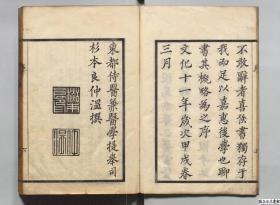 不敢辭者喜佚書獨存于
我而足以嘉惠後學也聊
書其概略為之序
文化十一年歲次甲戌春
三月
東都侍醫兼醫學提舉司
杉本良仲溫撰
六